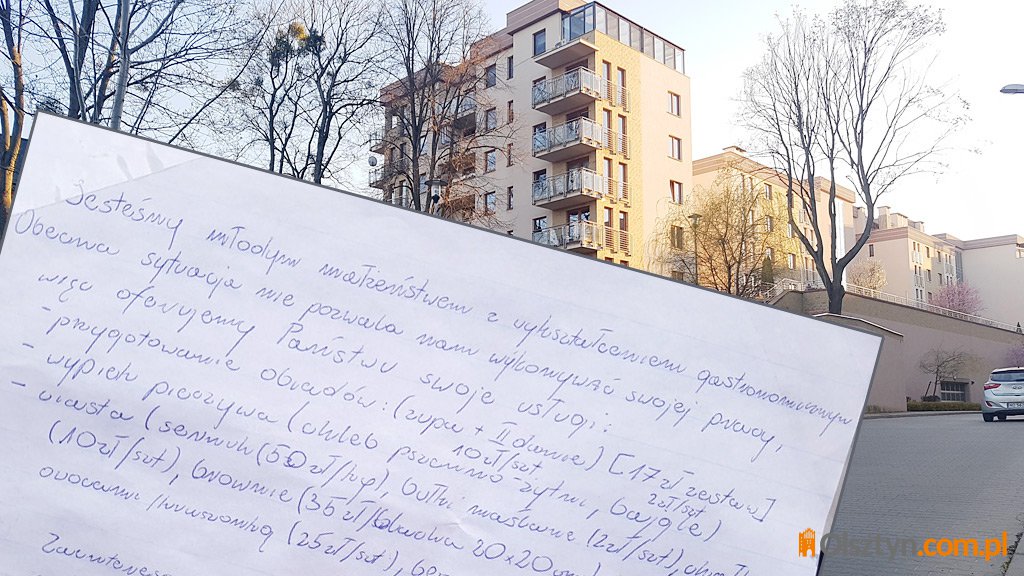 Jesteśmy młodym małżeństwem z wykształceniem gastronomicznym
Obecna sytuacja nie pozwala nam wykonywać swojej pracy,
więc oferujemy Państwu swoje usługi:
- przygotowanie obiadów: (zupa + II danie) [17 zł zestaw]
- wypiek pieczywa (chleb pszenno-żytni 10 zł/szt, bajgle 2 zł/szt)
- ciasta (sernik (50 zł/kg), bułki maślane (2 zł/szt),
(10 zł/szt), brownie (35 zł/ 20x20
owocami/kruszonką (25 zł/szt),
Olsztyn.com.pl